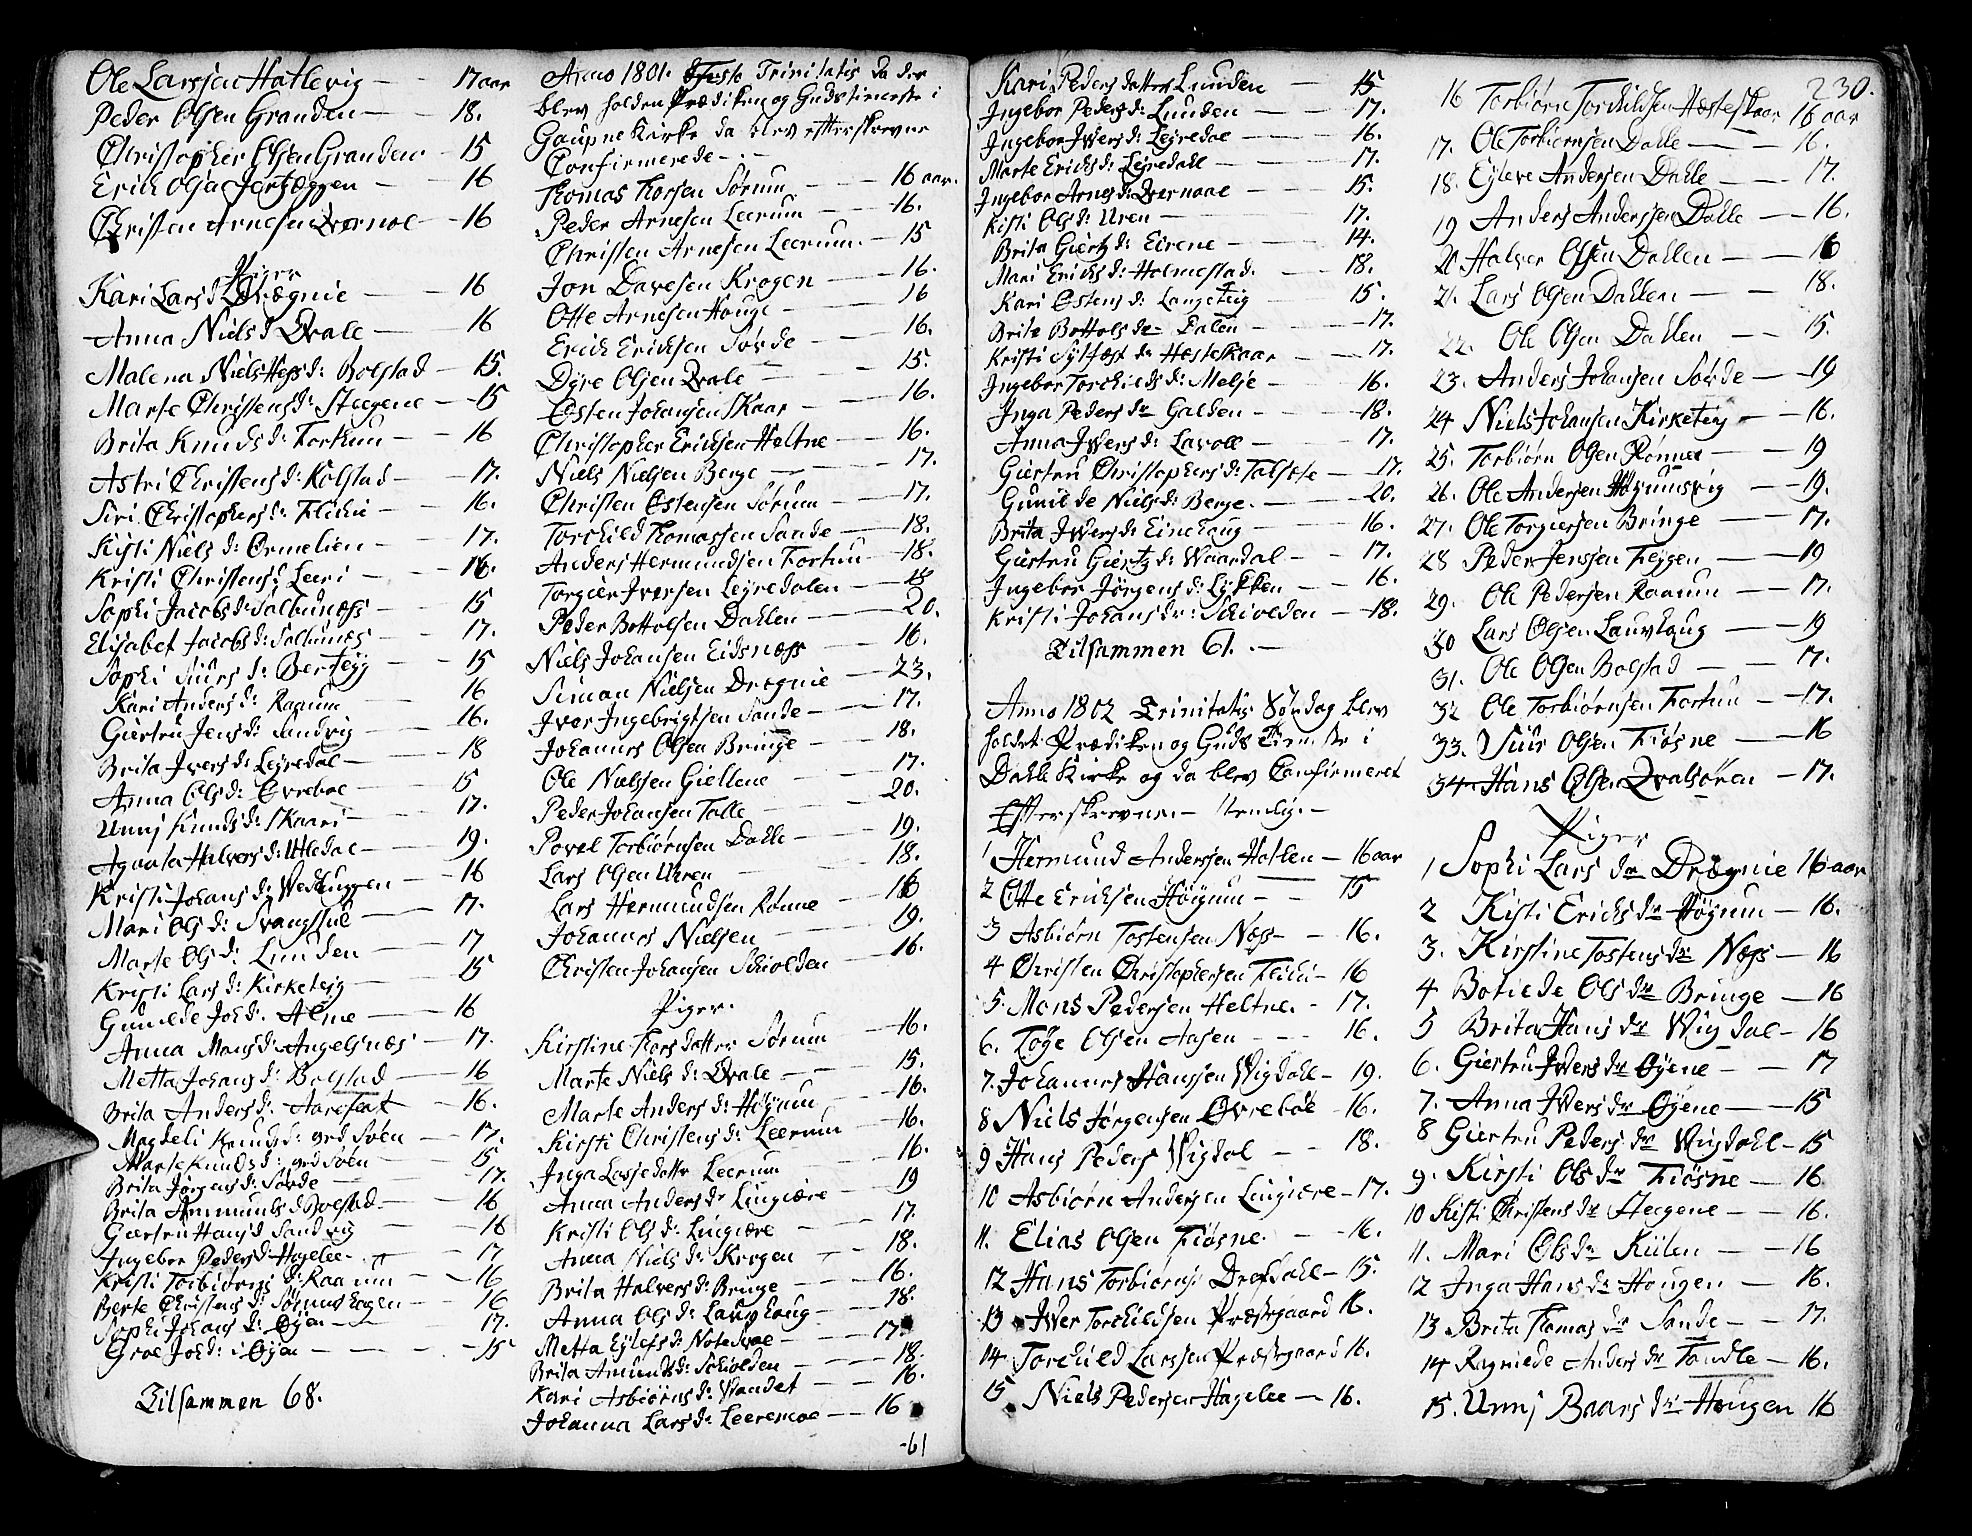 Ole Larssen Hatlevig — 17 aar
Peder Olsen Granden — 18.
Christopher Olsen Granden 15
Erich Olsen 16
Christen Arnesen Qvernoe — 16
Piger
Kari Lars d: Drægnie — 16
Anna Niels d: Qvale — 16
Malena Niels d: Bolstad — 15.
Marte Christens d: Steegene — 15
Brita Knuds d: Fortuun — 16
Astri Christens d: Kolstad — 17.
Siri Christophers d: Flichi — 16.
Kisti Niels d: Ormelien — 17.
Kristi Christens d: Leeri — 16.
Sophi Jacobs d: Salhunæss — 15
Elisabet Jacobs d: Salhunæs — 17.
Sophi Siurs d: Berteig — 15
Kari Anders d: Raaum 16
Giertru Jens d: Sandvig 16.
Brita Ivers d: Leyredal — 18
Anna Ols d: Øvreboe — 15
Unni Knuds d: Skaari — 17.
Agaata Halvers d: Utledal — 19.
Kristi Johans d: 16
Mari Ols d: 17.
Marte Ols d: Lunden — 17
Kristi Lars d: Kirketeig 15
Gunilde Joh d: Alme — 16
Anna Mons d: Angelsnæs — 17.
Metta Johans d: Bolstad — 16
Brita Anders d: — 16.
Magdeli Knuds d: Søen — 17.
Marte Knuds d: Søen — 15
Brita Jørgens d: Sørde — 17.
Brita Ammunds d: Bolstad — 16
Giertru Hans d: Sandvig — 16
Ingebor Peders d: Hagelee — 17
Kristi Torbiørns d: Raaum — 16
Berte Christens d: 16
Sophi Johans d: Øyen — 17.
Groe Joh d: Øyen — 15
Tilsammen 68.
Anno 1801. Festo Trinitatis da der
blev holden Prædiken og Gudstieneste i
Gaupne Kirke da blev efterskrevne
Confirmerede —
Thomas Thorsen Sørum — 16 aar.
Peder Arnesen Leerum — 16.
Christen Arnesen Leerum — 15
Jon Davesen Krogen — 16.
Otte Arnesen Houge — 16
Erich Erichsen Sørde — 16.
Dyre Olsen Qvale — 15.
Østen Johansen Skaar — 16.
Christopher Erichsen Heltne — 16.
Niels Nielsen Berge — 17.
Christen Østensen Sørum — 17.
Torchild Thomassen Sande — 18.
Anders Hermundsen Fortuun — 18.
Torgier Iversen Leyredalen — 18
Peder Bottolsen Dahlen — 20.
Niels Johansen Eidsnæss — 16.
Simon Nielsen Drægnie — 23.
Iver Ingebrigtsen Sande — 17.
Johannes Olsen Bringe — 18.
Ole Nielsen Giellene — 17.
Peder Johansen Talle — 20.
Povel Torbiørnsen Dahle — 19.
Lars Olsen Uren — 18.
Lars Hermundsen Rønne — 16
Johannes Nielsen — 19.
Christen Johansen Schiolden — 16.
Piger.
Kirstine Thors datter Sørum — 16.
Marte Niels d: Qvale — 15.
Marte Anders d: Høyum — 16.
Kirsti Christens d: Leerum — 16.
Inga Lasse datter Leerum — 16.
Anna Anders dr Lingiære — 19
Kristi Ols d: Lingiære — 17
Anna Niels d: Krogen — 18.
Brita Halvers d: Bringe — 16.
Anna Ols d: Lauvhaug — 18.
Metta Eylefs d: — 17
Brita Amunds d: Schiolden — 18.
Kari Asbiørns d: Vandet — 16.
Johanna Lars d: Leeremoe — 16
61
Kari Peders datter Lunden — 15
Ingebor Peders d: Lunden — 17.
Ingebor Ivers d: Leyredal — 16.
Marte Erichs d: Leyredahl — 17.
Ingebor Arnes d: Qvernoe — 15.
Kisti Ols d: Uren — 17.
Brita Giertz d: Eirene — 14.
Mari Erichs d: Holmestad. — 18.
Kari Østens d: Langeteig — 15.
Brite Bottols dr Dalen — 17.
Kristi Sylfæst dr Hesteskaar — 17.
Ingebor Torchields d: Melse — 16.
Inga Peders dr Galden — 18.
Anna Ivers d: Lavoll — 17.
Giertru Christophers d: — 17.
Gunilde Niels d: Berge. — 20.
Brita Ivers d: Einehoug — 16.
Giertru Giertz d: Waardal — 17.
Ingebor Jørgens d: Lykken — 16.
Kristi Johans dr: Schiolden — 18.
Tilsammen 61. —
Anno 1802 Trinitatis Søndag blev
holdet Prædiken og Guds Tieneste i
Dahle Kirke og da blev Confirmeret
Efterskrevne — Nemlig: —
1 Hermund Andersen Hatlen — 16 aar
2 Otte Erichsen Høyum — 15
3 Asbiørn Tostensen Næss — 16.
4 Christen Christophersen Flichi — 16
5. Mons Pedersen Heltne. — 17.
6. Tøge Olsen Aasen — 16.
7. Johannes Hanssen Wigdahl — 19.
8 Niels Jørgensen Øvreboe — 16.
9 Hans Peders Wigdal — 18.
10 Asbiørn Andersen Lingiære — 17.
11. Elias Olsen Fiøsne. — 16.
12 Hans Torbiørns: — 15.
13 Iver Torchildsen Præstegaard 16.
14 Torchild Larssen Præstegaard 16.
15 Niels Pedersen Hagelee — 16.
230.
16 Torbiørn Torchildsen Hæsteskaar 16 aar
17. Ole Torbiørnsen Dahle — 16.
18. Eyleve Andersen Dahle — 17.
19 Anders Anderssen Dahle — 16.
20 Halver Olsen Dahlen — 16
21. Lars Olsen Dahlen — 18.
22. Ole Olsen Dahlen — 15.
23. Anders Johansen Sørde — 19
24 Niels Johansen Kirketeig — 16.
25. Torbiørn Olsen Rønnei — 19
26. Ole Andersen — 19.
27. Ole Torgiersen Bringe — 17.
28 Peder Jenssen Feggen — 19
29. Ole Pedersen Raaum — 17.
30 Lars Olsen Lauvhaug — 19
31. Ole Olsen Bolstad — 17.
32 Ole Torbiørnsen Fortun — 17.
33. Siur Olsen Fiøsne — 16
34 Hans Olsen Qvalsøren — 17.
Piger
1 Sophi Lars dr Drægnie 16 aar
2 Kisti Erichs dr Høyum — 16.
3. Kirstine Tostens dr Næss — 16
4 Botilde Ols dr Bringe — 16
5 Brita Hans dr Wigdal — 16
6. Giertru Ivers dr Øyene — 17
7. Anna Ivers dr Øyene — 15
8 Giertru Peders dr Wigdahl — 15
9. Kirsti Ols dr Fiøsne — 16
10 Kisti Christens dr Steegene — 16.
11. Mari Ols dr Kiilen — 16
12 Inga Hans dr Hougen — 16.
13 Brita Thomas dr Sande — 17.
14 Ragnilde Anders dr Tandle — 16.
15. Unni Baars dr Hougen 16